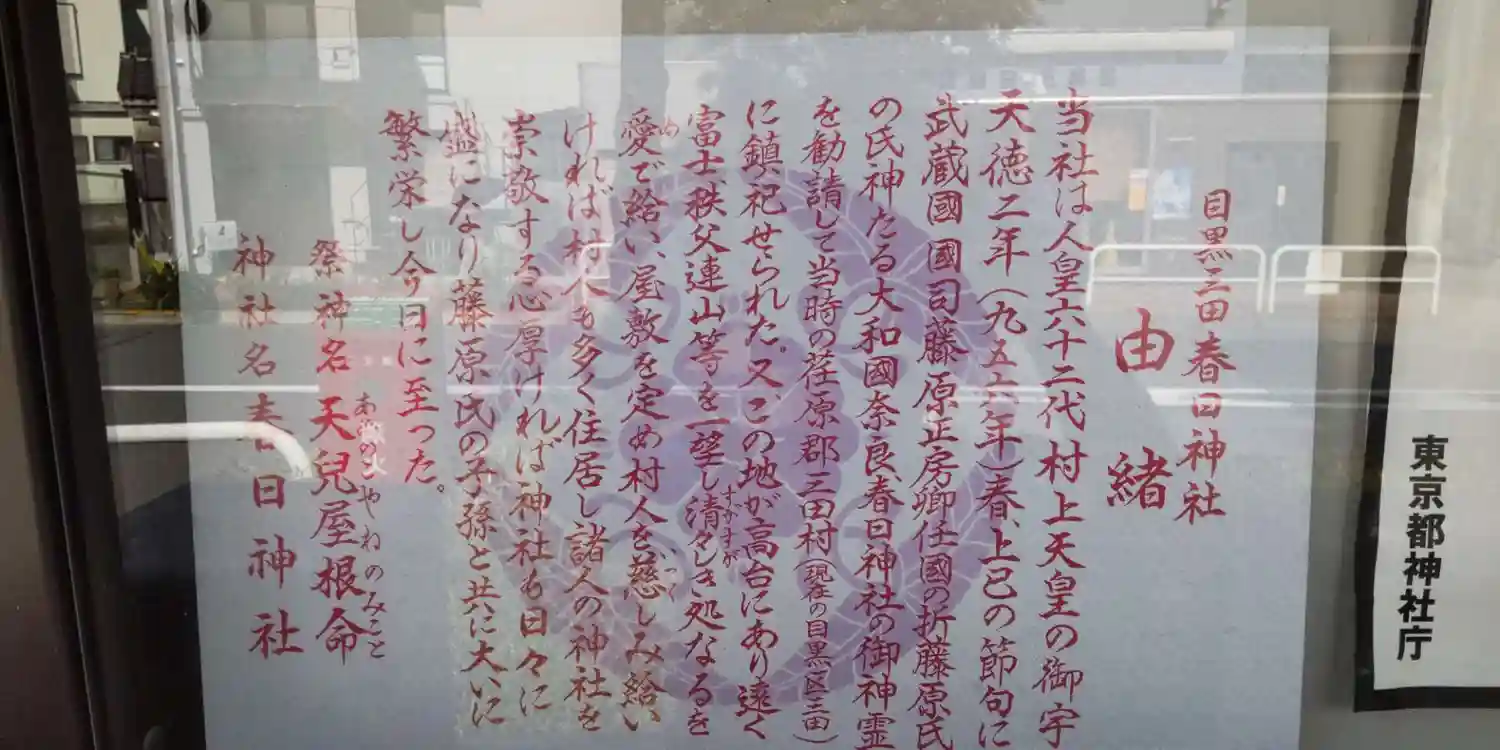 東京都神社庁
目黒三田春日神社
由緒
当社は人皇六十二代村上天皇の御宇
天徳二年(九五六年)春、上巳の節句に
武蔵國國司藤原正房卿任國の折藤原氏
の氏神たる大和國奈良春日神社の御神霊
を勧請して当時の荏原郡三田村(現在の目黒区三田)
に鎮祀せられた。又、この地が高台にあり遠く
富士秩父連山等を一望し清々しき処なるを
すがすが
愛で給い、屋敷を定め村人を慈しみ給い
め
いつく
ければ村人も多く住居し諸人の神社を
崇敬する心厚ければ神社も日々に
盛になり藤原氏の子孫と共に大いに
繁栄し今日に至った。
祭神名 天兒屋根命
あめのこやねのみこと
神社名 春日神社